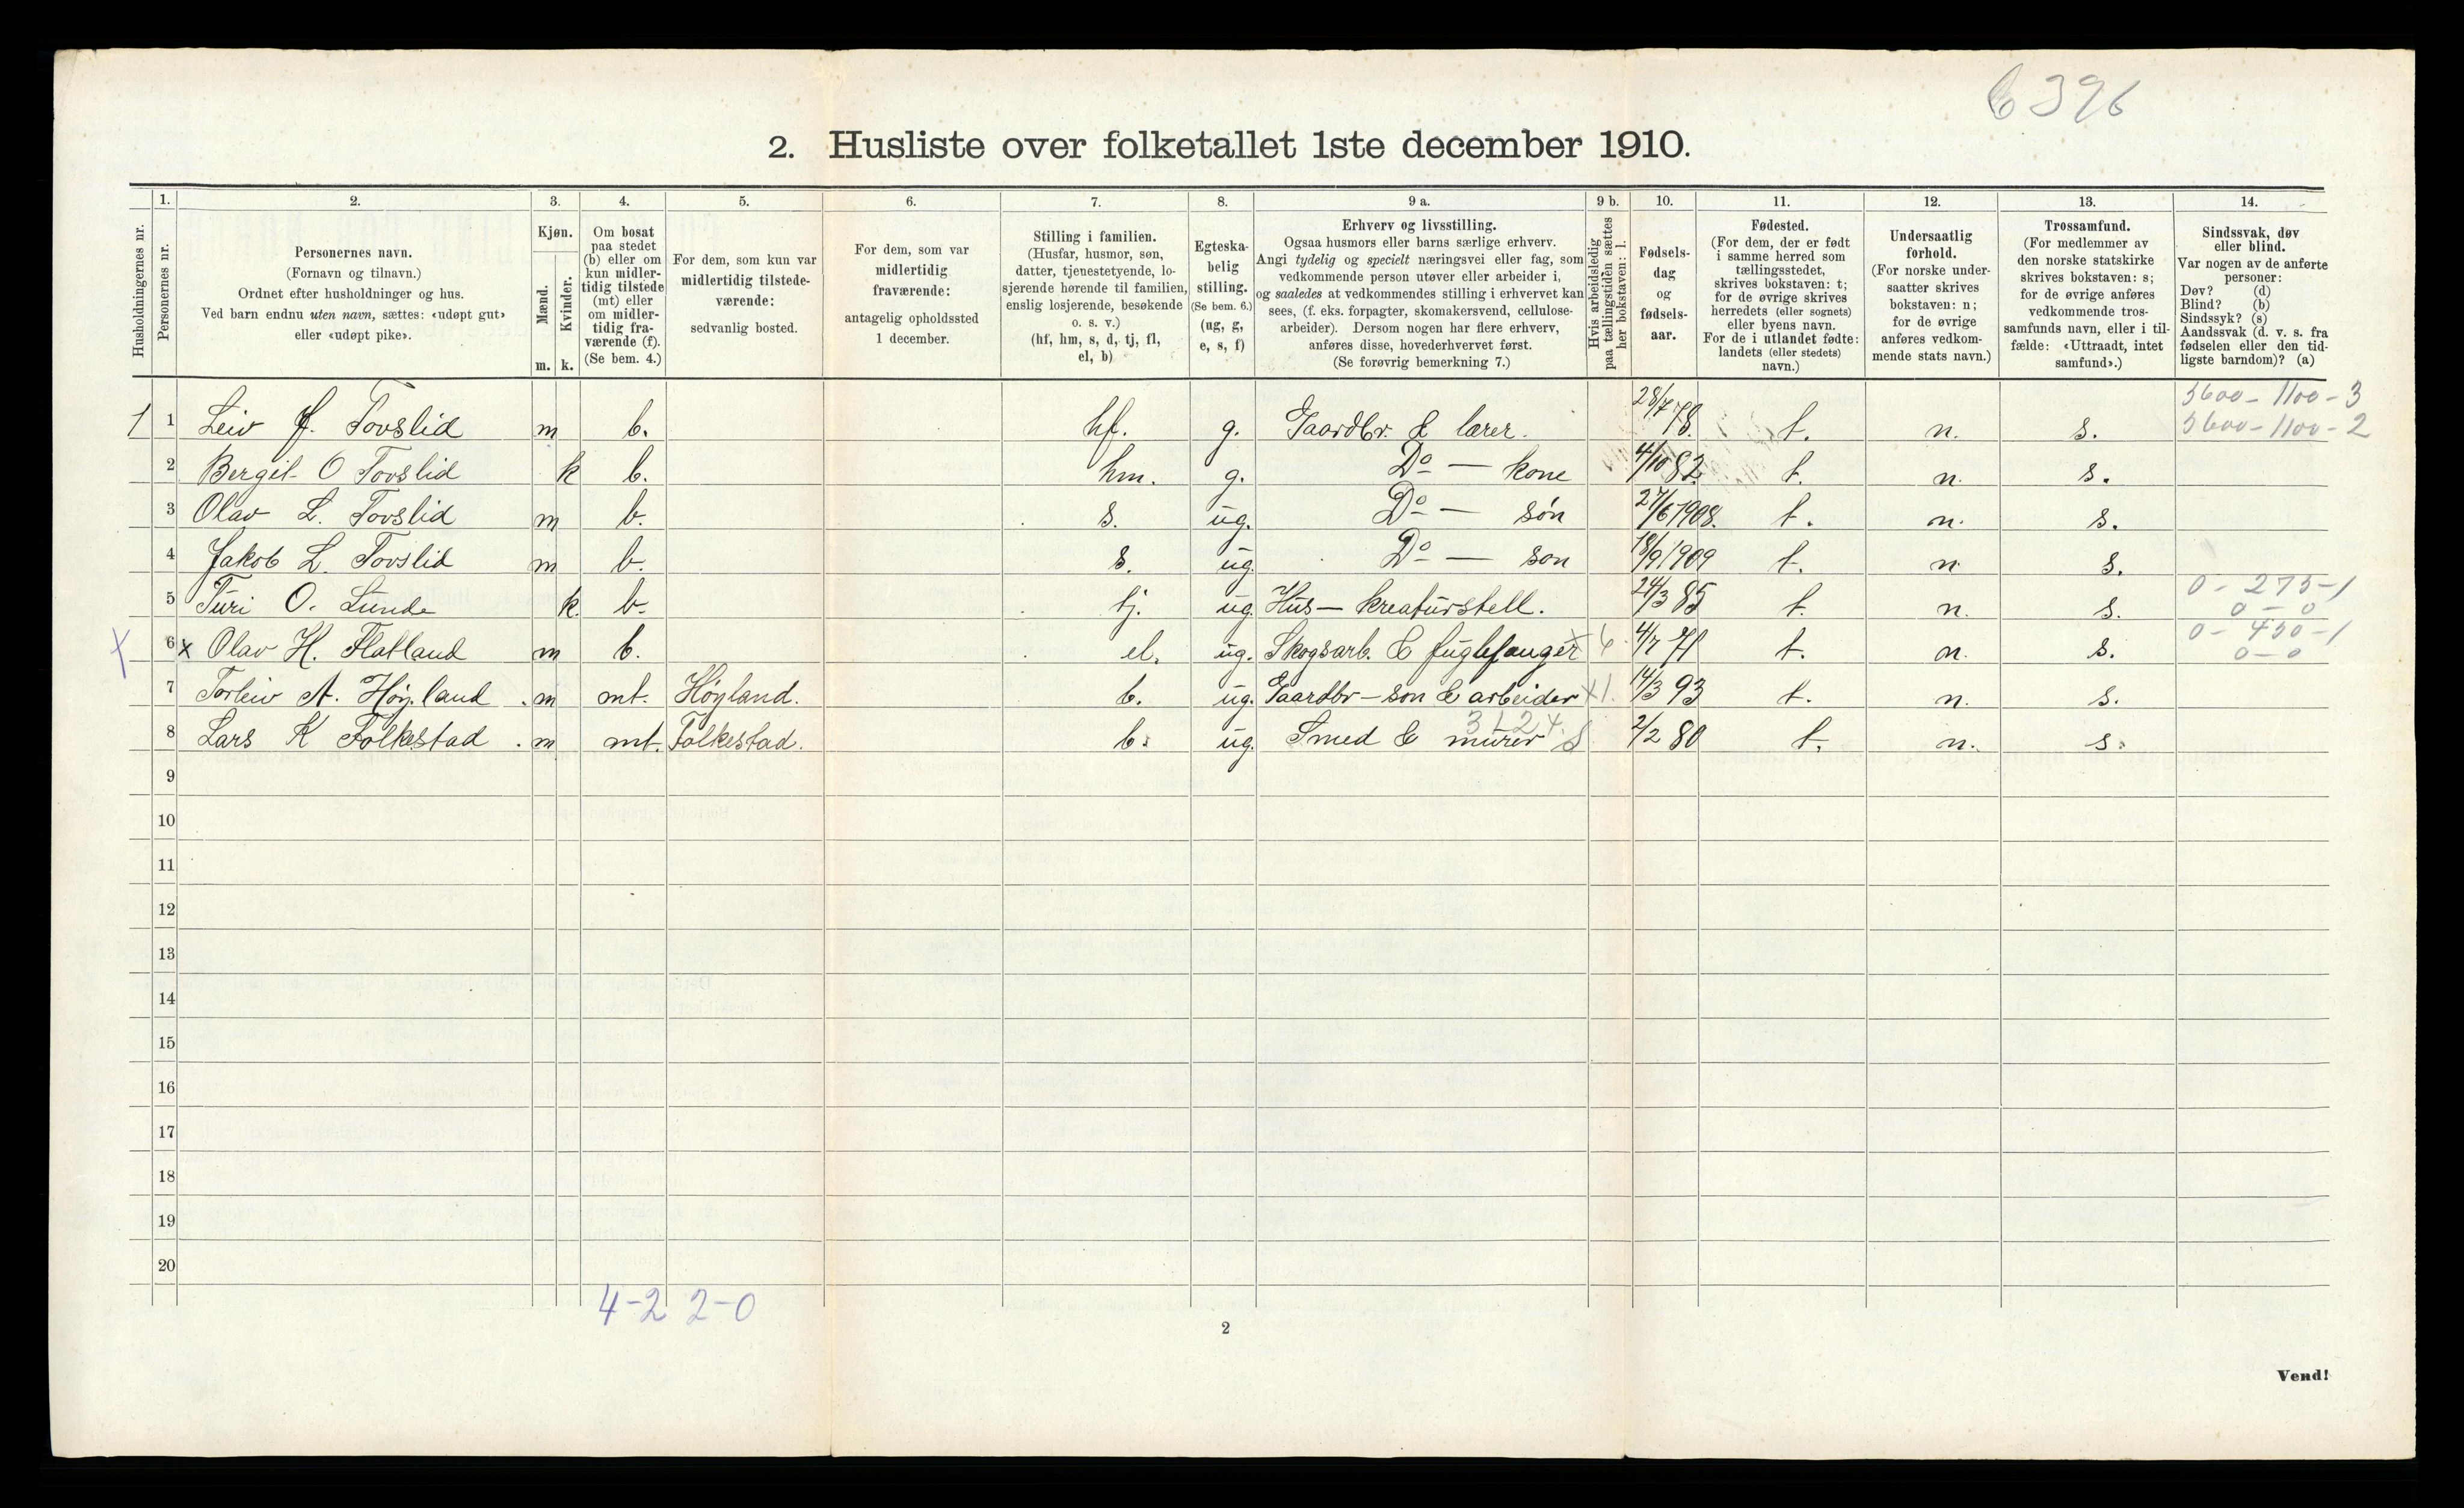 6396
2. Husliste over folketallet 1ste december 1910.
Husholdningernes nr.
1.
Personernes nr.
2.
Personernes navn.
(Fornavn og tilnavn.)
Ordnet efter husholdninger og hus.
Ved barn endnu uten navn, sættes: «udøpt gut»
eller «udøpt pike».
3.
Kjøn.
Mænd.
Kvinder.
m. k.
4.
Om bosat
paa stedet
(b) eller om
kun midler-
tidig tilstede
(mt) eller
om midler-
tidig fra-
værende (f).
(Se bem. 4.)
5.
For dem, som kun var
midlertidig tilstede-
værende:
sedvanlig bosted.
6.
For dem, som var
midlertidig
fraværende:
antagelig opholdssted
1 december.
7.
Stilling i familien.
(Husfar, husmor, søn,
datter, tjenestetyende, lo-
sjerende hørende til familien,
enslig losjerende, besøkende
o. s. v.)
(hf, hm, s, d, tj, fl,
el, b)
8.
Egteska-
belig
stilling.
(Se bem. 6.)
(ug, g,
e, s, f)
9 a.
Erhverv og livsstilling.
Ogsaa husmors eller barns særlige erhverv.
Angi tydelig og specielt næringsvei eller fag, som
vedkommende person utøver eller arbeider i,
og saaledes at vedkommendes stilling i erhvervet kan
sees, (f. eks. forpagter, skomakersvend, cellulose-
arbeider). Dersom nogen har flere erhverv,
anføres disse, hovederhvervet først.
(Se forøvrig bemerkning 7.)
9 b.
Hvis arbeidsledig
paa tællingstiden sættes
her bokstaven: l.
10.
Fødsels-
dag
og
fødsels-
aar.
11.
Fødested.
(For dem, der er født
i samme herred som
tællingsstedet,
skrives bokstaven: t;
for de øvrige skrives
herredets (eller sognets)
eller byens navn.
For de i utlandet fødte:
landets (eller stedets)
navn.)
12.
Undersaatlig
forhold.
(For norske under-
saatter skrives
bokstaven: n;
for de øvrige
anføres vedkom-
mende stats navn.)
13.
Trossamfund.
(For medlemmer av
den norske statskirke
skrives bokstaven: s;
for de øvrige anføres
vedkommende tros-
samfunds navn, eller i til-
fælde: «Uttraadt, intet
samfund».)
14.
Sindssvak, døv
eller blind.
Var nogen av de anførte
personer:
Døv? (d)
Blind? (b)
Sindssyk? (s)
Aandssvak (d. v. s. fra
fødselen eller den tid-
ligste barndom)? (a)
3600 - 1100 - 3
1 1 Leiv J. Tovslid m b. hf. g. Gaardbr. & lærer. 28/7 78. t. n. s. 3600 - 1100 - 2
2 Bergit O Tovslid k b. hm. g. Do — kone 4/10 82 t. n. s.
3 Olav L. Tovslid m b. s. ug. Do — søn 27/6 1908. t. n. s.
4 Jakob L. Tovslid m b. s. ug. Do — søn 18/9 1909 t. n s.
5 Turi O. Lunde k. b. tj. ug. Hus — kreaturstell. 24/3 85 t. n. s. 0 - 275 - 1
0 - 0
6 x Olav H. Flatland m b. el. ug. Skogsarb. & fuglefanger x 6 4/7 71 t. n. s. 0 - 450 - 1
0 - 0
7 Torleiv A. Høyland. m mt. Høyland. b. ug. Gaardbr — søn & arbeider x 1. 14/3 93 t. n. s.
3124
8 Lars K Folkestad. m mt. Folkestad. b. ug. Smed & murer S 2/2 80 t. n. s.
9
10
11
12
13
14
15
16
17
18
19
20
4-2 2-0
2
Vend!